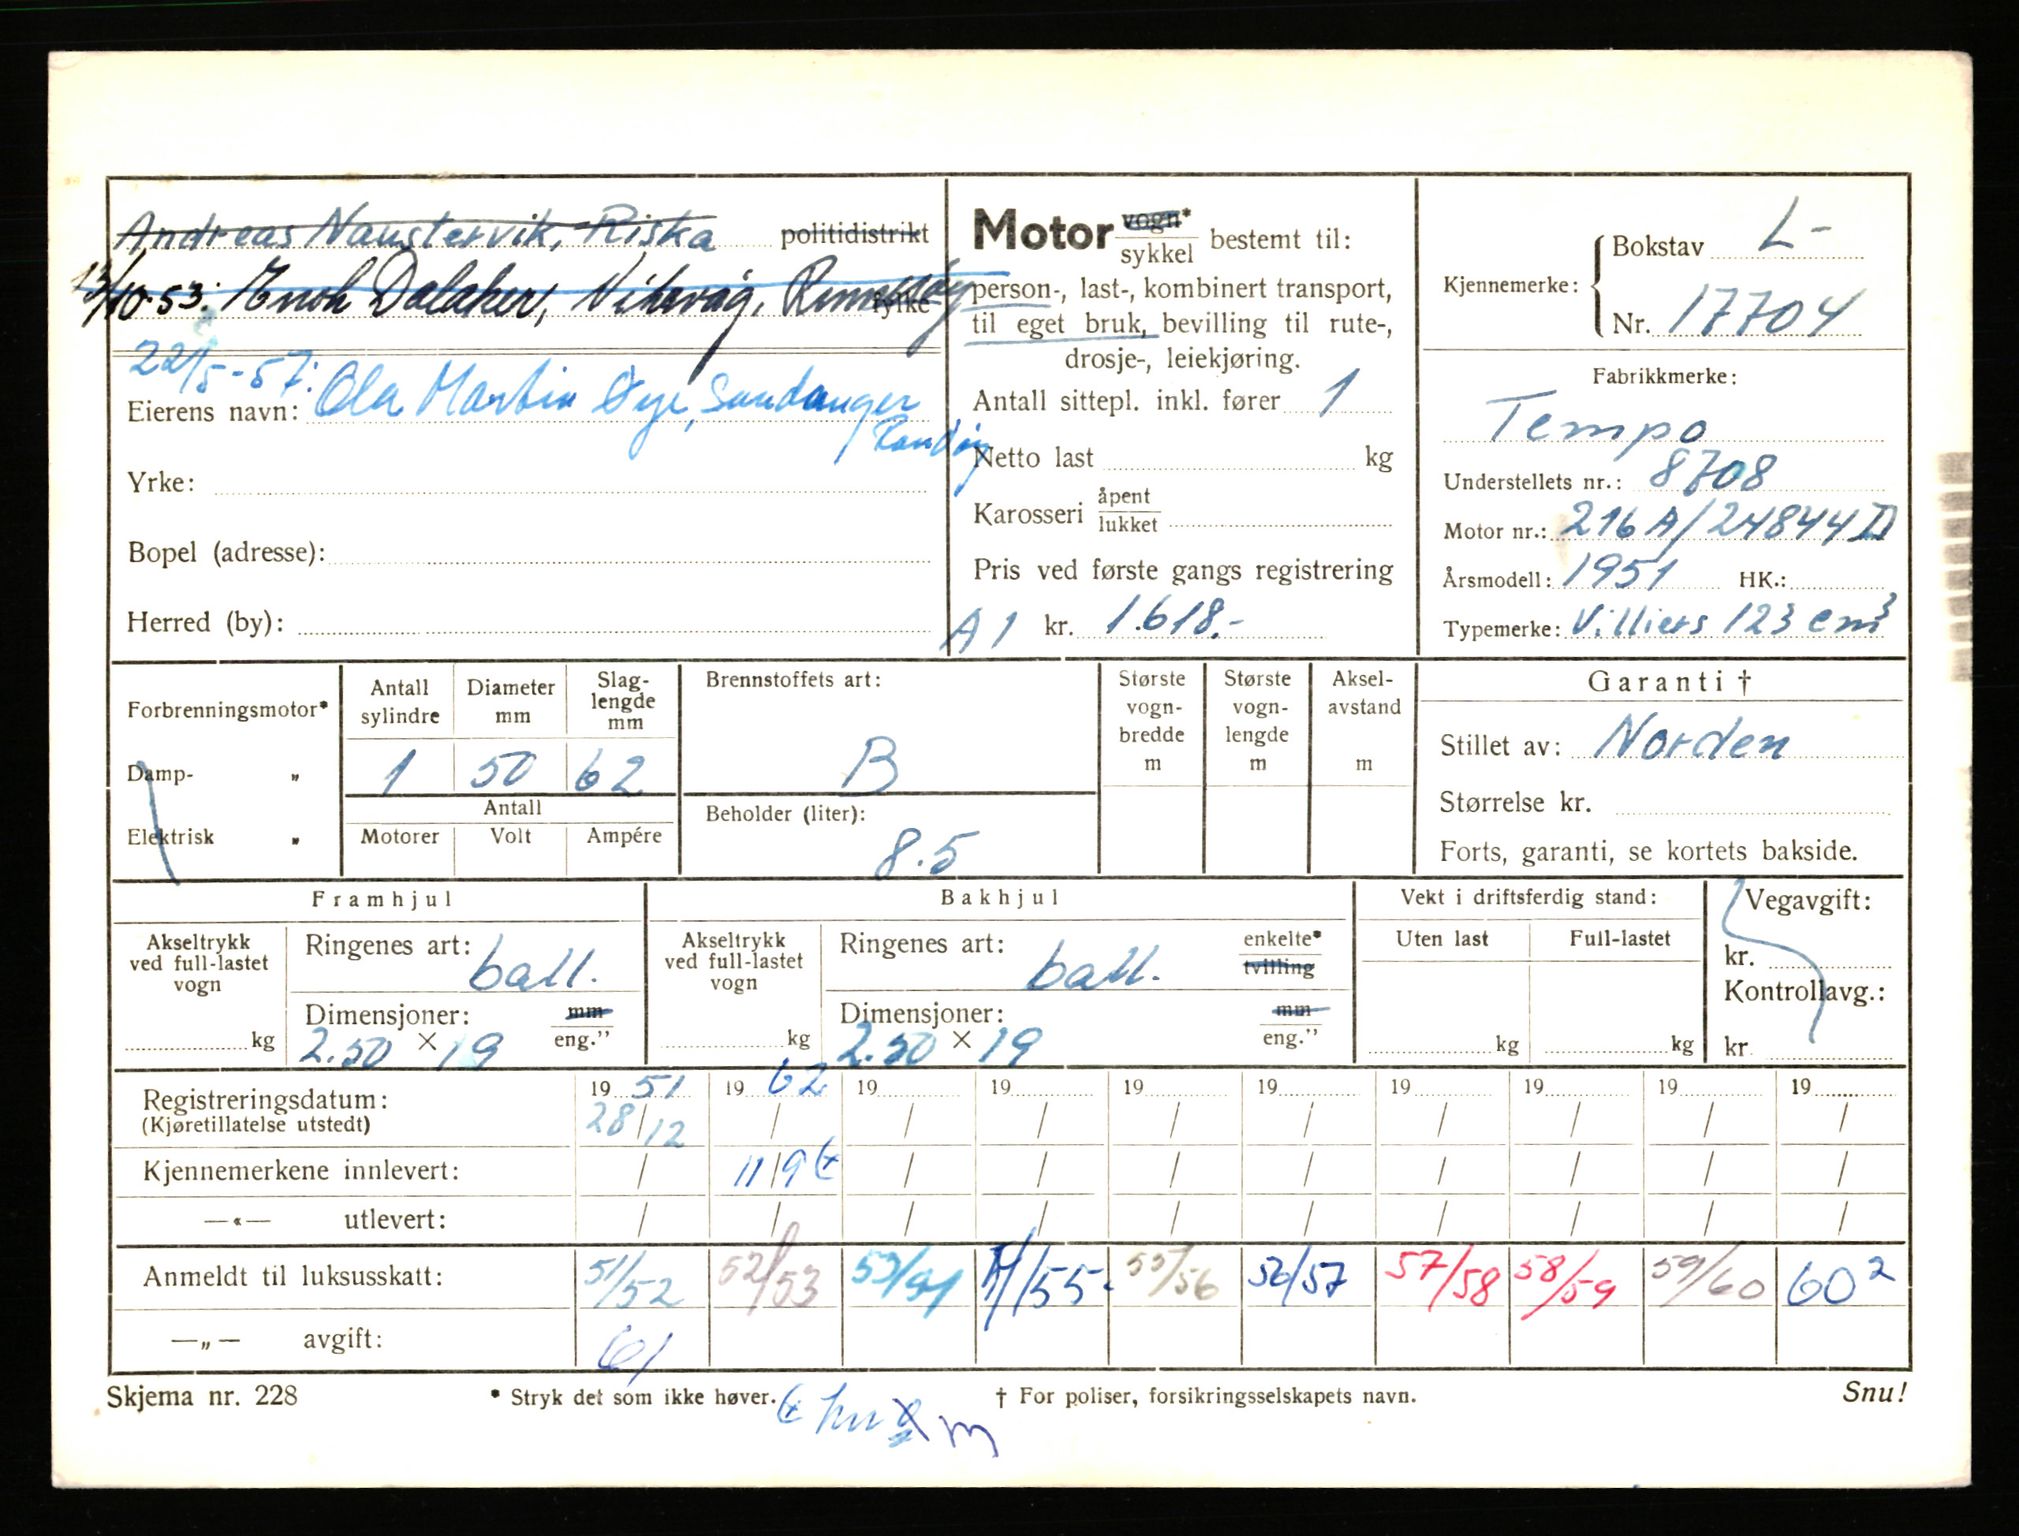 Andreas Naustervik, Riska politidistrikt
13/10-53: Enok Dalaker, Vikevåg, Rennesøy fylke
22/5-57: Ola Martin Øye, Sandanger
Randøy
Eierens navn:
Yrke:
Bopel (adresse):
Herred (by):
Motor vogn*
sykkel bestemt til:
person-, last-, kombinert transport,
til eget bruk, bevilling til rute-,
drosje-, leiekjøring.
Antall sittepl. inkl. fører 1
Netto last kg
Karosseri åpent
lukket
Pris ved første gangs registrering
A1 kr. 1.618.-
Kjennemerke: Bokstav L-
Nr. 17704
Fabrikkmerke:
Tempo
Understellets nr.: 8708
Motor nr.: 216 A/24844 D
Årsmodell: 1951 HK.:
Typemerke: Villiers 123 cm³
Forbrenningsmotor*
Damp- „
Elektrisk „
Antall sylindre Diameter mm Slag-lengde mm
1 50 62
Antall
Motorer Volt Ampére
Brennstoffets art:
B
Beholder (liter):
8.5
Største vogn-bredde m
Største vogn-lengde m
Aksel-avstand m
Garanti †
Stillet av: Norden
Størrelse kr.
Forts, garanti, se kortets bakside.
Framhjul
Akseltrykk ved full-lastet vogn kg
Ringenes art: ball.
Dimensjoner: mm
2.50 × 19 eng.”
Bakhjul
Akseltrykk ved full-lastet vogn kg
Ringenes art: ball. enkelte*
tvilling
Dimensjoner: mm
2.50 × 19 eng.”
Vekt i driftsferdig stand:
Uten last Full-lastet
kg kg
Vegavgift:
kr.
Kontrollavg.:
kr.
Registreringsdatum: 19 51 19 62 19 19 19 19 19 19 19 19
(Kjøretillatelse utstedt) 28/12 / / / / / / / / /
Kjennemerkene innlevert: / 11/9 / / / / / / / /
—«— utlevert: / / / / / / / / / /
Anmeldt til luksusskatt: 51/52 52/53 53/54 54/55 55/56 56/57 57/58 58/59 59/60 60²
—„— avgift: 61
Skjema nr. 228 * Stryk det som ikke høver. † For poliser, forsikringsselskapets navn. Snu!